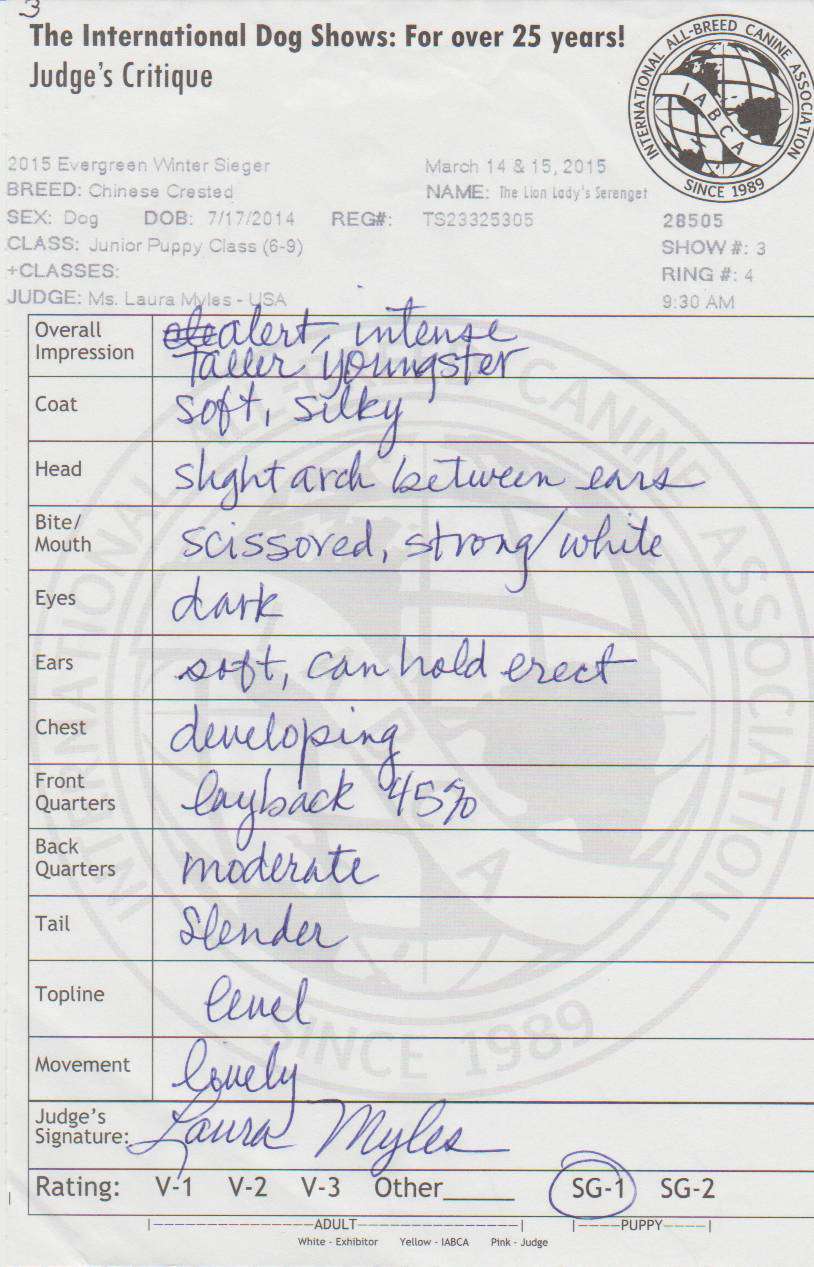 3
The International Dog Shows: For over 25 years!
Judge's Critique
INTERNATIONAL ALL-BREED CANINE ASSOCIATION
IABCA
SINCE 1989
2015 Evergreen Winter Sieger March 14 & 15, 2015
BREED: Chinese Crested NAME: The Lion Lady's Serenget
SEX: Dog DOB: 7/17/2014 REG#: TS23325305 28505
CLASS: Junior Puppy Class (6-9) SHOW #: 3
+CLASSES: RING #: 4
JUDGE: Ms. Laura Myles - USA 9:30 AM
Overall Impression alert, intense
Taller youngster
Coat soft, silky
Head slight arch between ears
Bite/ Mouth scissored, strong/white
Eyes dark
Ears soft, can hold erect
Chest developing
Front Quarters layback 45%
Back Quarters moderate
Tail Slender
Topline level
Movement lovely
Judge's Signature: Laura Myles
Rating: V-1 V-2 V-3 Other_____ SG-1 SG-2
ADULT PUPPY
White - Exhibitor Yellow - IABCA Pink - Judge